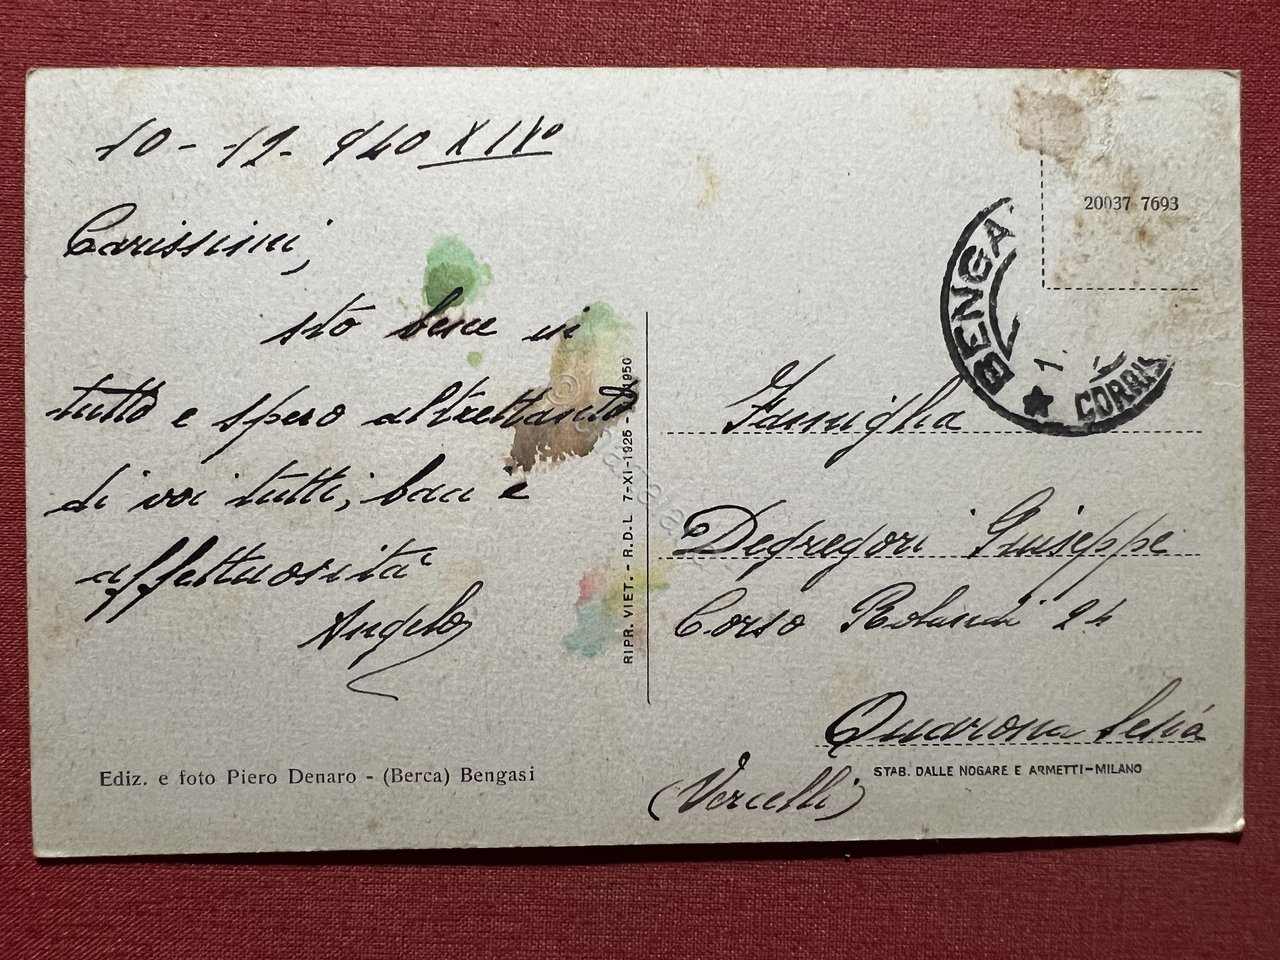 10-12-940 XIX°
Carissimi,
sto bene in
tutto e spero altrettanto
di voi tutti, baci e
affettuosità
Angelo
Ediz. e foto Piero Denaro - (Berca) Bengasi
RIPR. VIET. - R.D.L 7-XI-1925 - 1950
20037 7693
BENGA
1.
CORRIS
Famiglia
Degregori Giuseppe
Corso Rolandi 24
Quarona Sesia
STAB. DALLE NOGARE E ARMETTI-MILANO
(Vercelli)